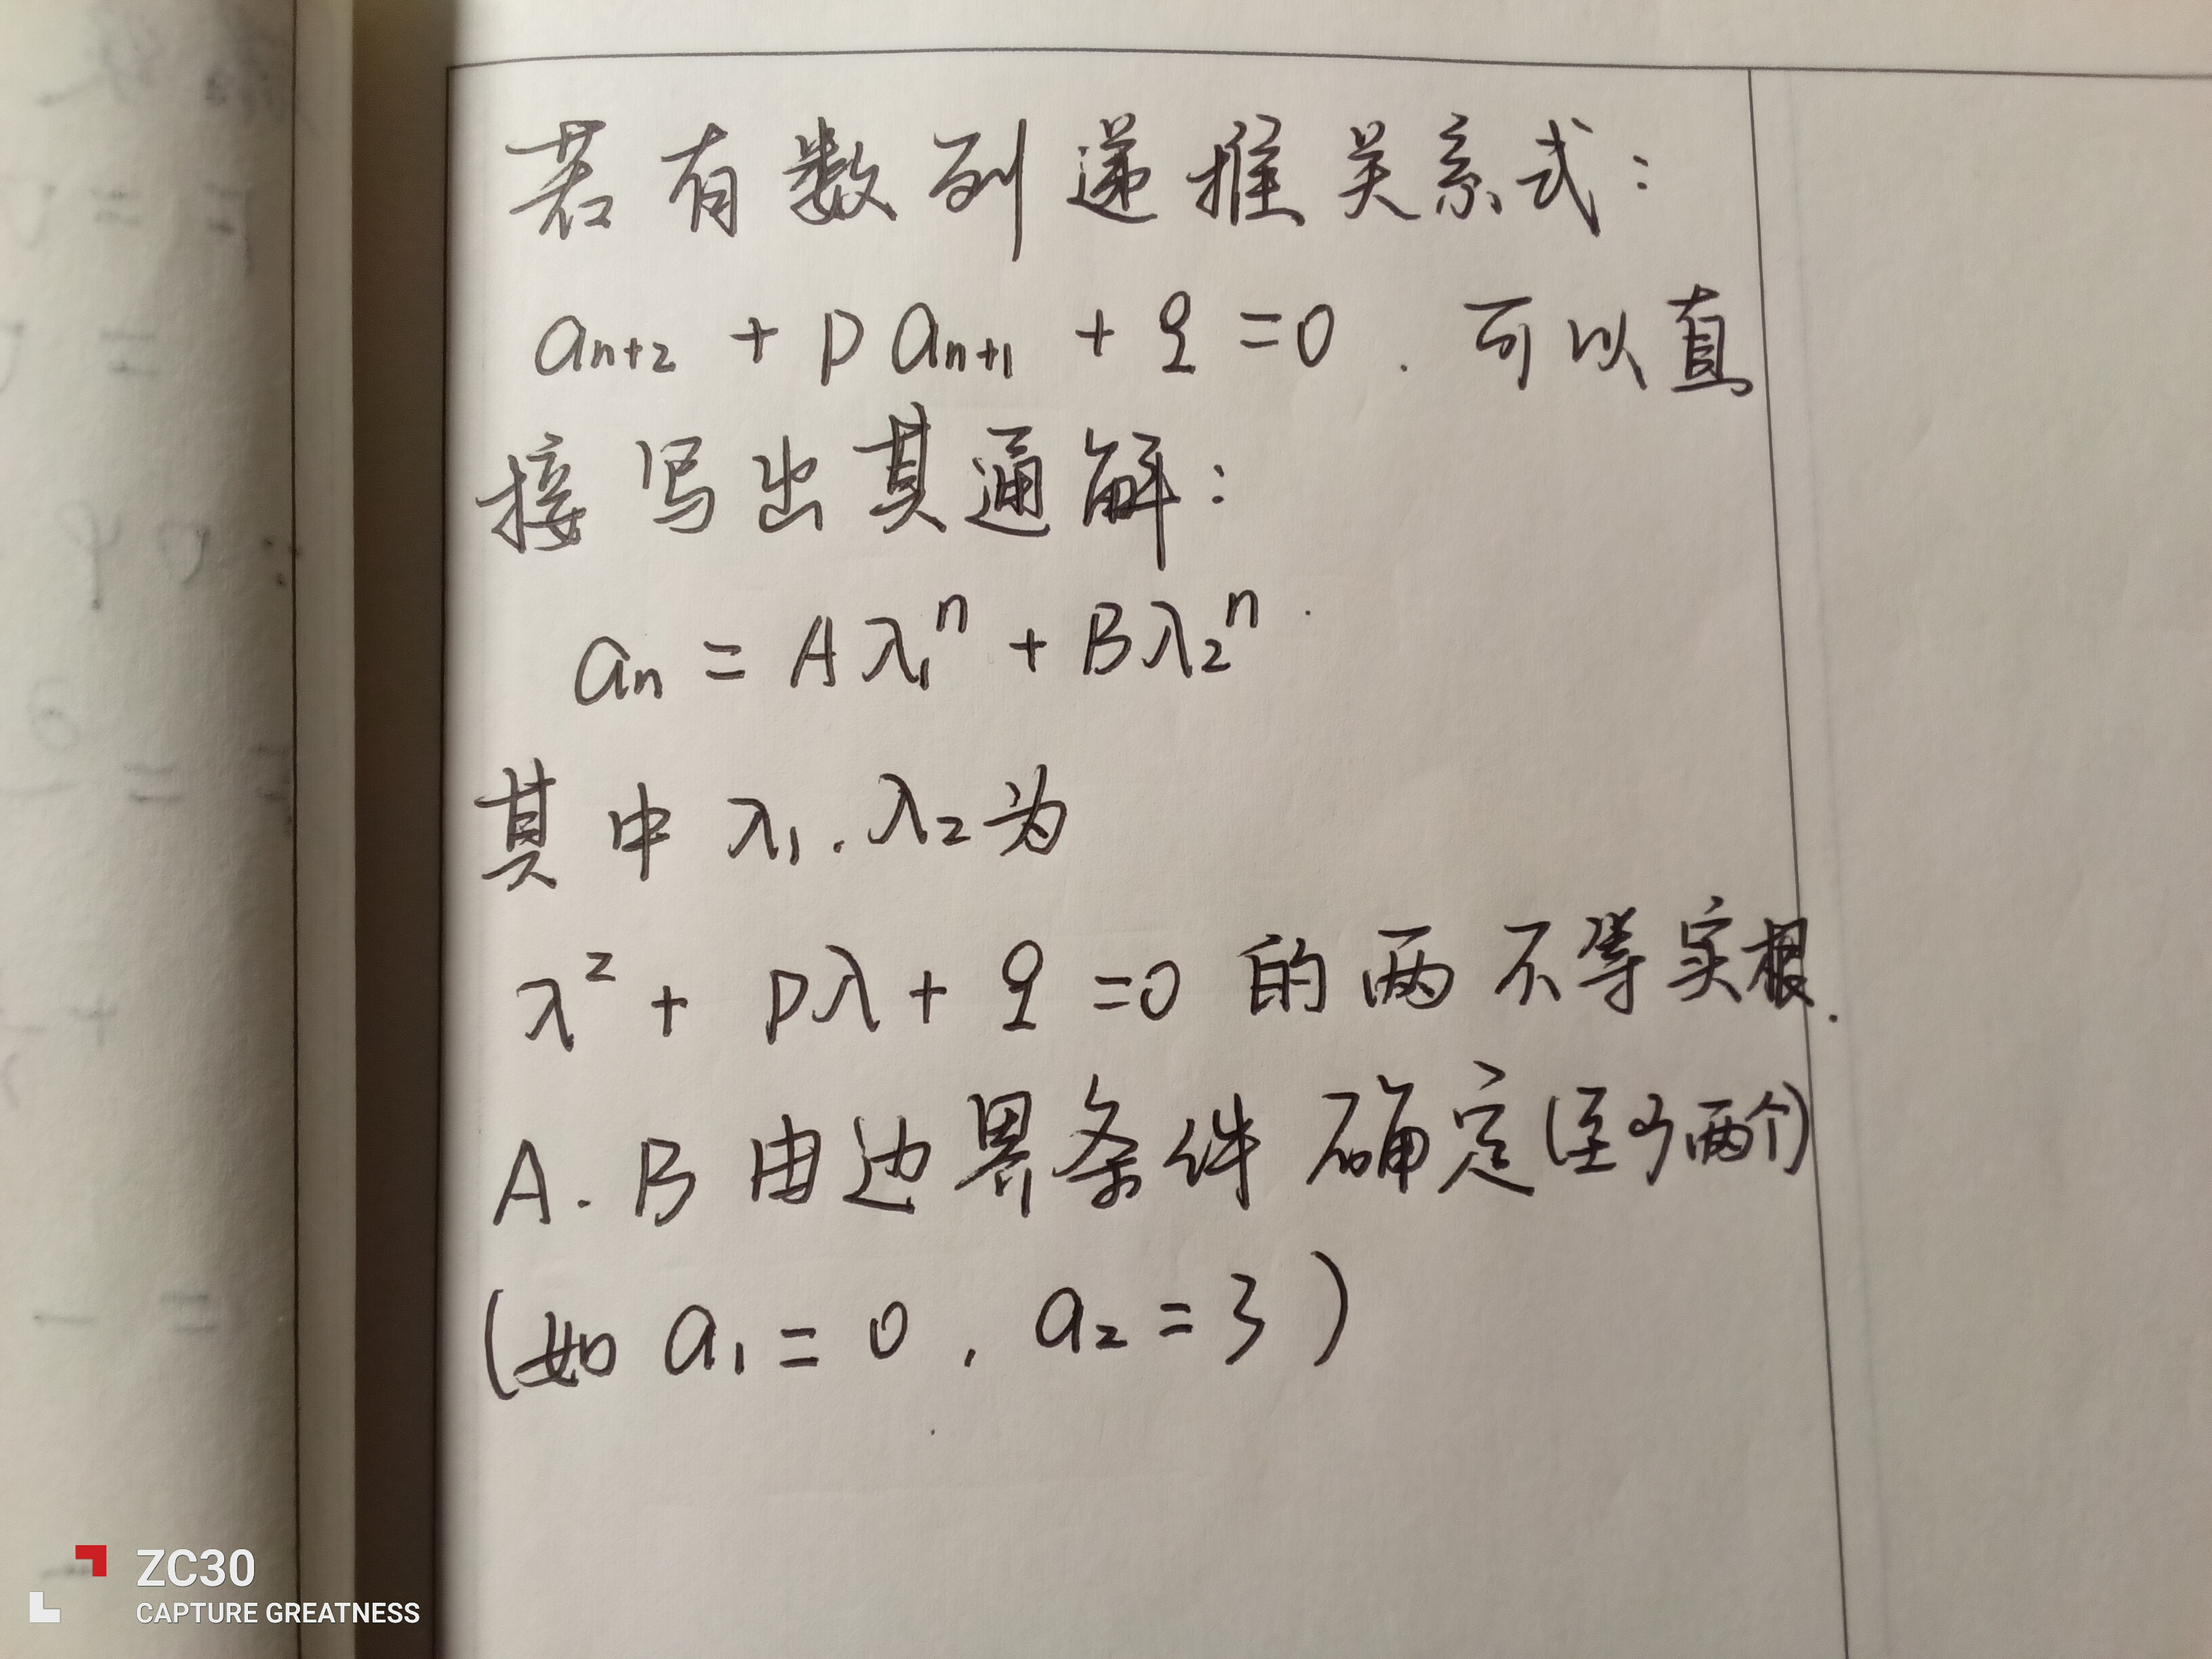 若有数列递推关系式：
aₙ₊₂ + p aₙ₊₁ + q = 0 . 可以直
接写出其通解：
aₙ = Aλ₁ⁿ + Bλ₂ⁿ .
其中 λ₁. λ₂ 为
λ² + pλ + q = 0 的两不等实根.
A. B 由边界条件确定(至少两个)
(如 a₁ = 0 , a₂ = 3 )
ZC30
CAPTURE GREATNESS